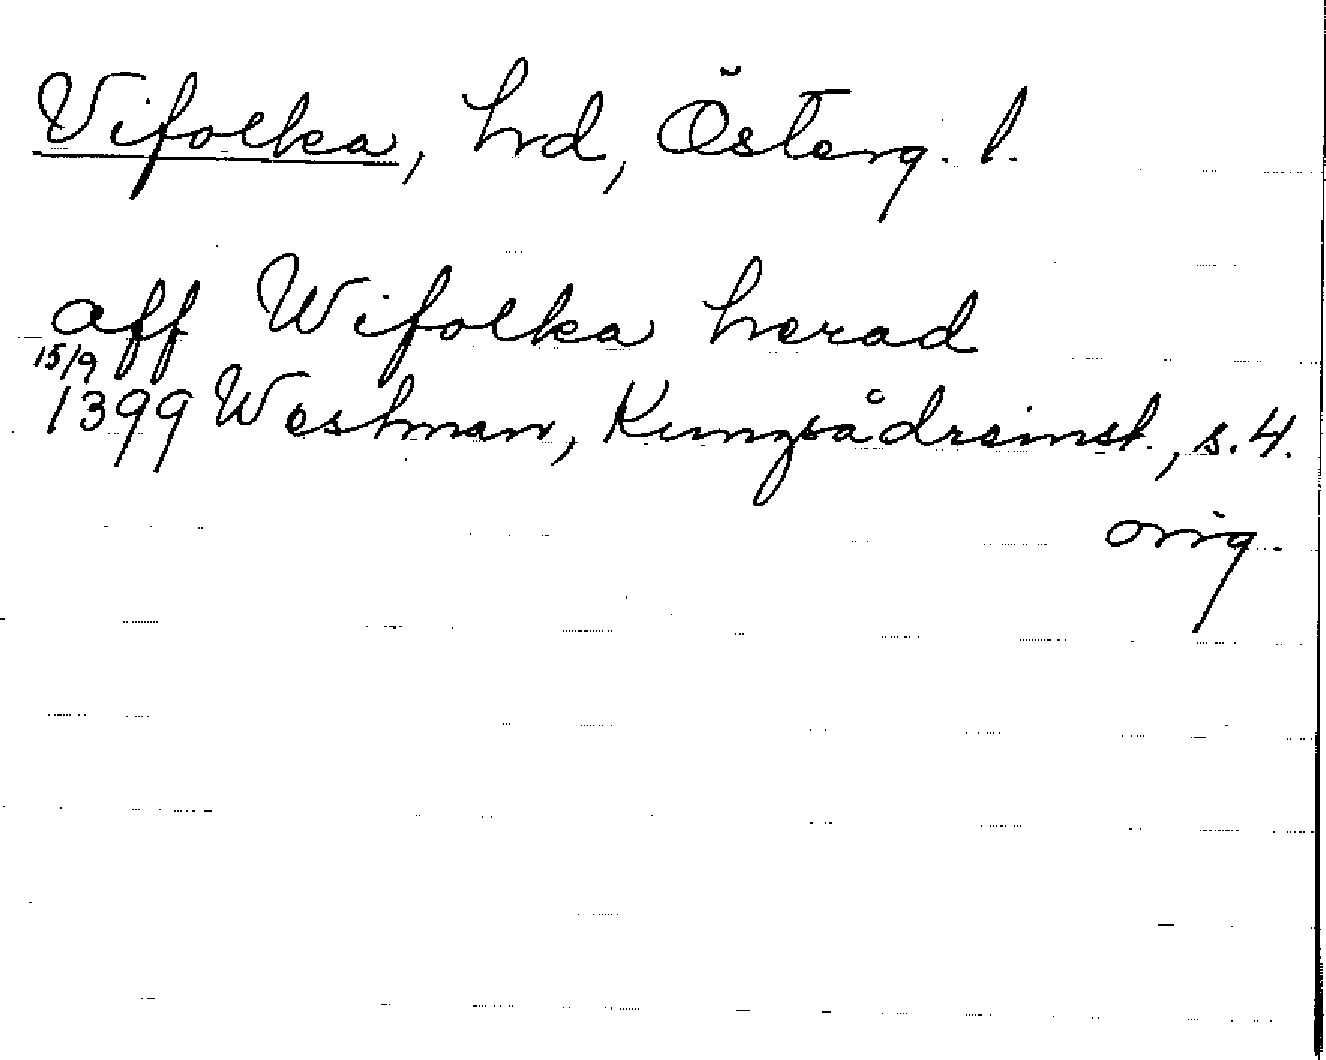 Vifolka, hrd, Österg. l.
aff Wifolka herad
15/9
1399 Westman, Kungsådreinst., s. 4.
orig.